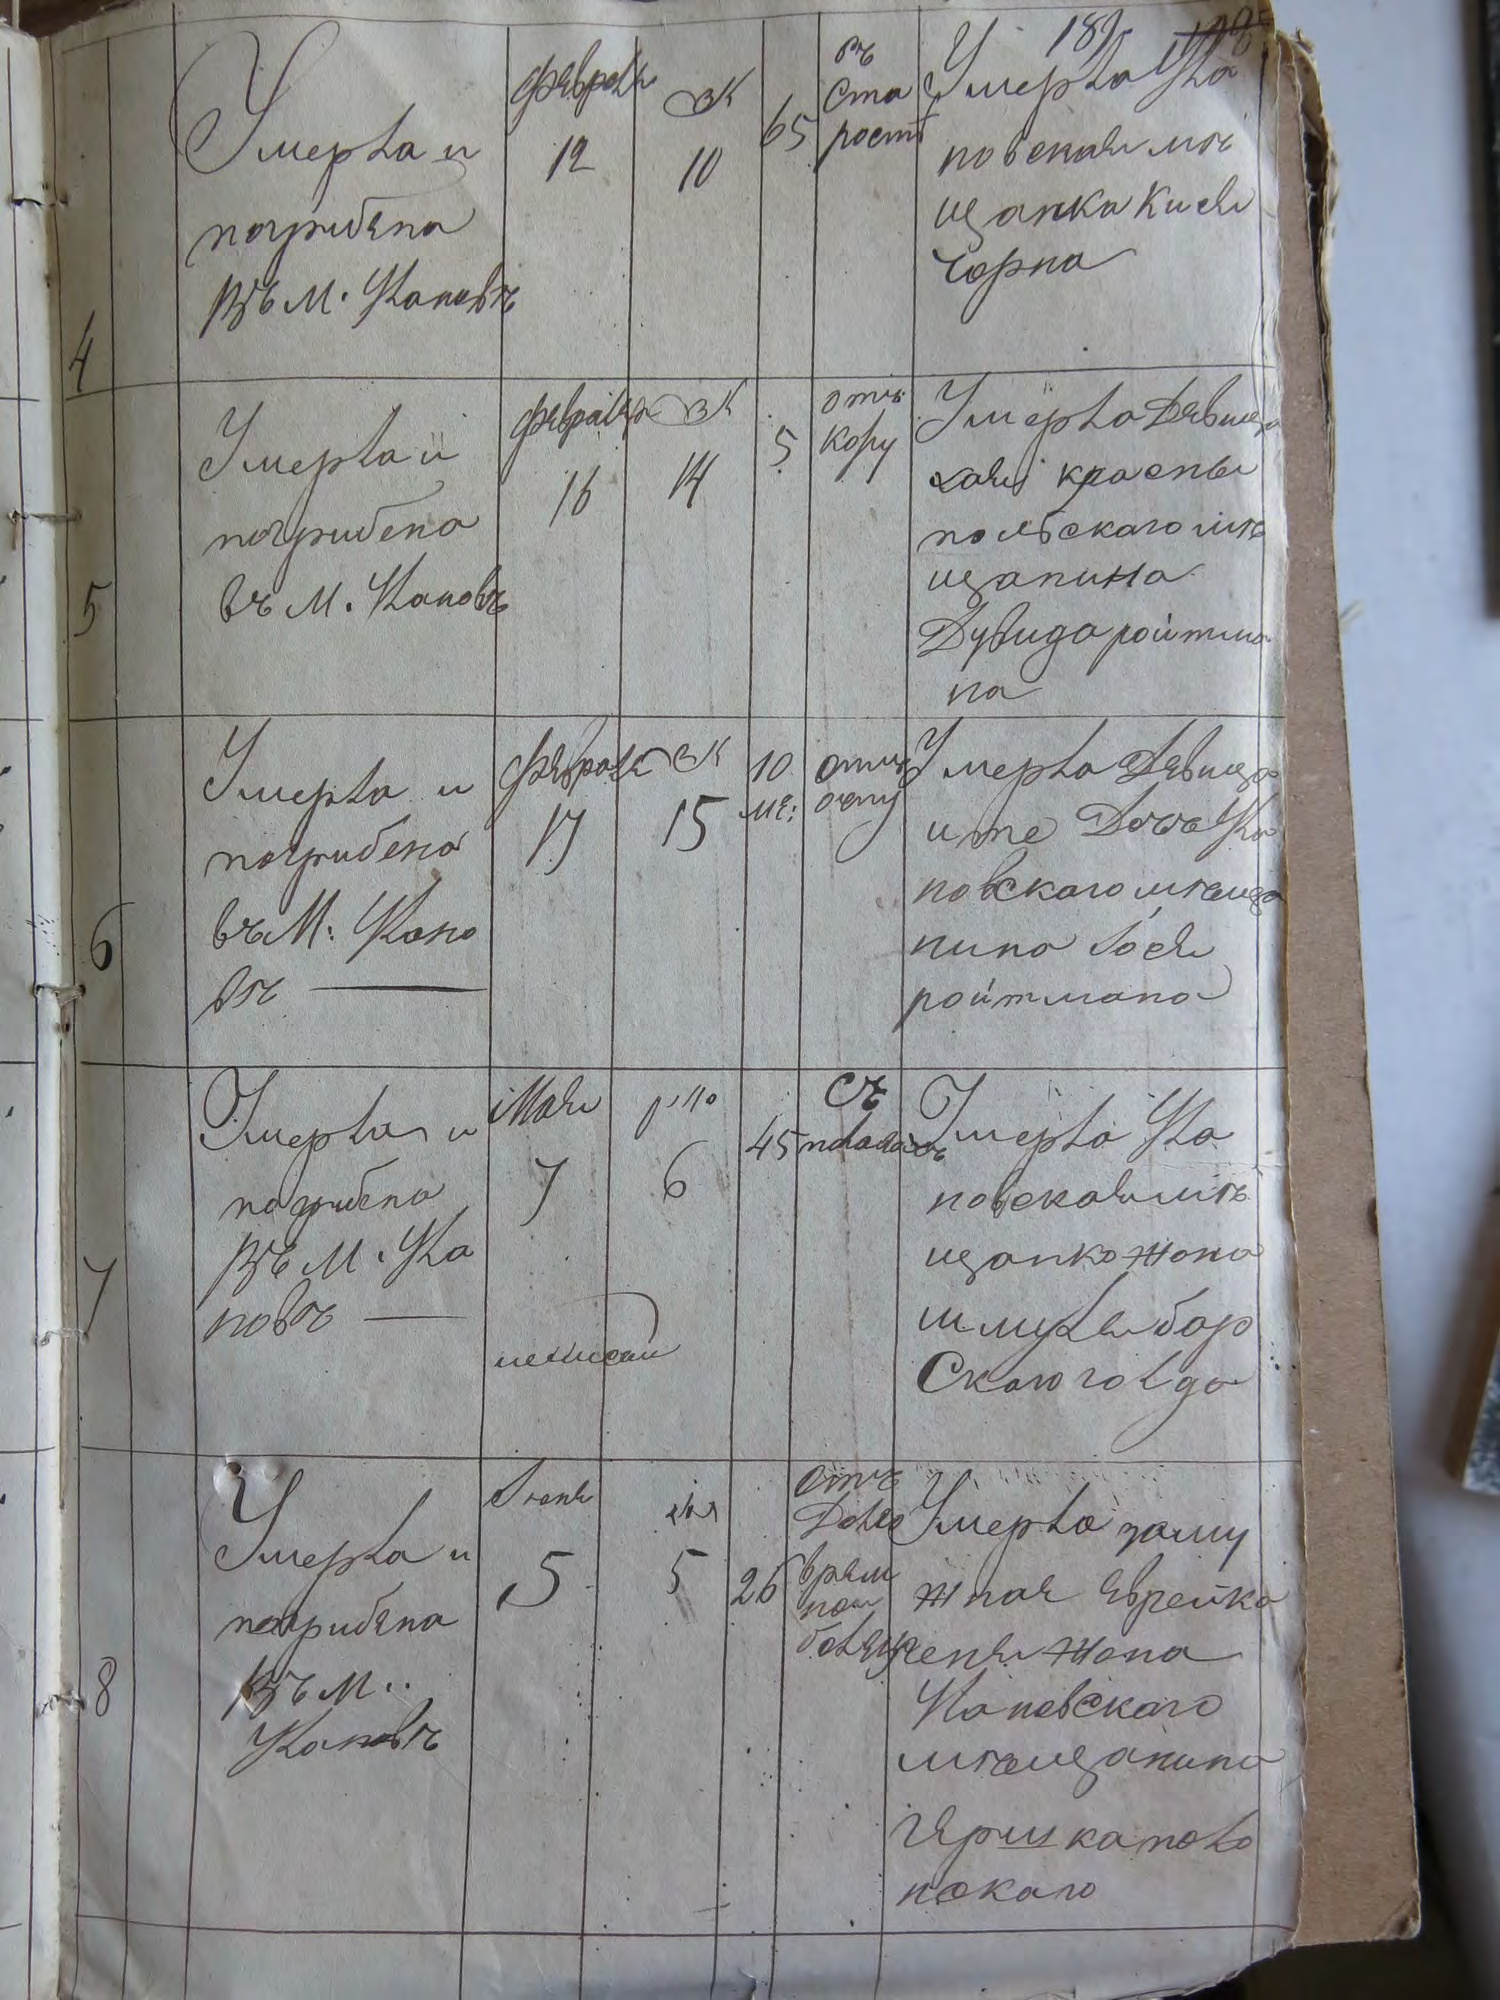 189
4
Умерла и
погрибена
въ М. Каневѣ
февраля
12
10
65
съ
ста
рости
Умерла Ка
невская мѣ
щанка Кися
Чорна
5
Умерла и
погрибена
въ М. Каневѣ
февраля
16
14
5
отъ
кору
Умерла Девица
Хая красне
польскаго мѣ
щанина
Дувида ройтма
на
6
Умерла и
погрибена
въ М. Кане
вѣ
февраля
17
15
10
ме:
отъ
оспу
Умерла Девица
ите Дочь Ка
невскаго мѣща
нина Іося
ройтмана
7
Умерла и
погрибена
въ М. Ка
невѣ
Мая
7
6
45
съ
Умерла Ка
невская мѣ
щанка жена
шмуля бор
Скаго голда
8
Умерла и
погрибена
въ М.
Каневѣ
Іюня
5
5
26
отъ
Долго
врем
ной
болѣзни
Умерла заму
жная еврейка
жена
Каневскаго
мѣщанина
Герш каполо
нскаго